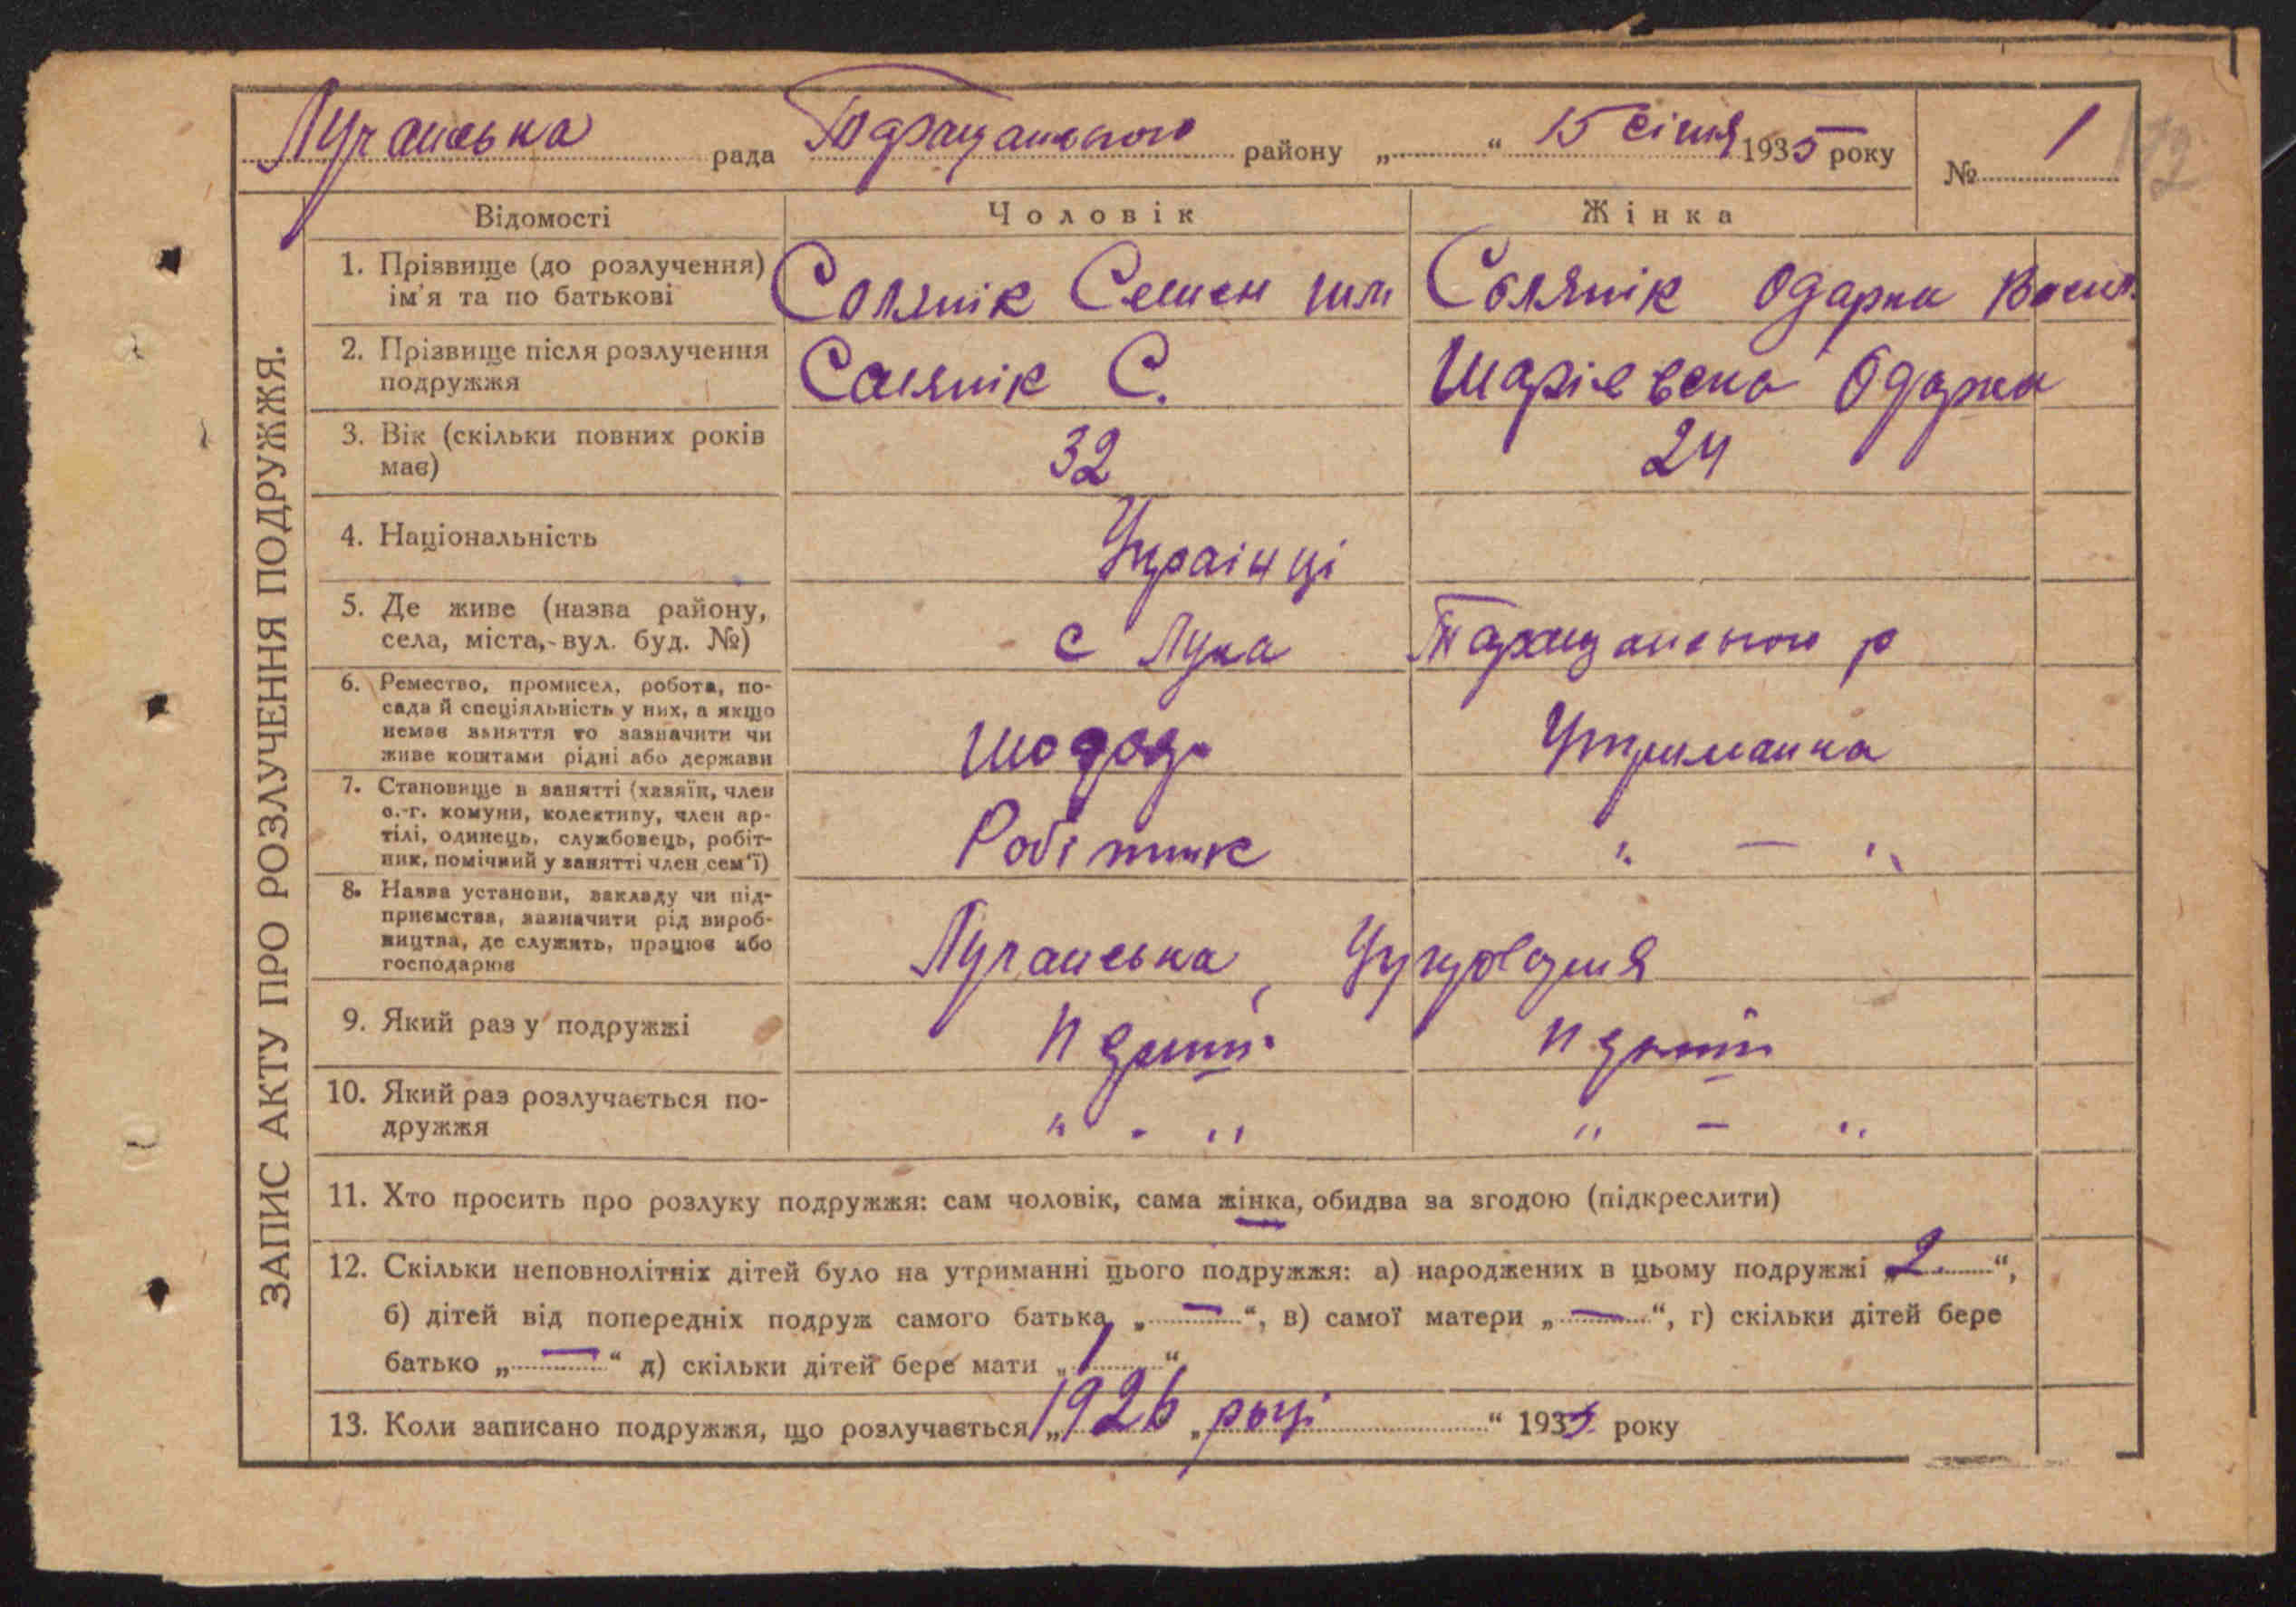 Лучанська рада Таращанського району „ “ 15 січня 1935 року № 1
ЗАПИС АКТУ ПРО РОЗЛУЧЕННЯ ПОДРУЖЖЯ.
Відомості Чоловік Жінка
1. Прізвище (до розлучення) ім'я та по батькові Солянік Семен Солянік Одарка Васил.
2. Прізвище після розлучення подружжя Солянік С. Одарка
3. Вік (скільки повних років має) 32 24
4. Національність Украінці
5. Де живе (назва району, села, міста, вул. буд. №) с Лука Таращанського р
6. Ремество, промисел, робота, по-
сада й спеціяльність у них, а якщо
немає заняття то зазначити чи
живе коштами рідні або держави Утриманка
7. Становище в занятті (хазяїн, член
с.-г. комуни, колективу, член ар-
тілі, одинець, службовець, робіт-
ник, помічний у занятті член сем'ї) Робітник " — "
8. Назва установи, закладу чи під-
приємства, зазначити рід вироб-
ництва, де служить, працює або
господарює Лучанська,
9. Який раз у подружжі
10. Який раз розлучається по-
дружжя " - " " — "
11. Хто просить про розлуку подружжя: сам чоловік, сама жінка, обидва за згодою (підкреслити)
12. Скільки неповнолітніх дітей було на утриманні цього подружжя: а) народжених в цьому подружжі „2.“,
б) дітей від попередніх подруж самого батька „—“, в) самої матери „—“, г) скільки дітей бере
батько „—“ д) скільки дітей бере мати „1“
13. Коли записано подружжя, що розлучається „1926 „році “ 1935 року